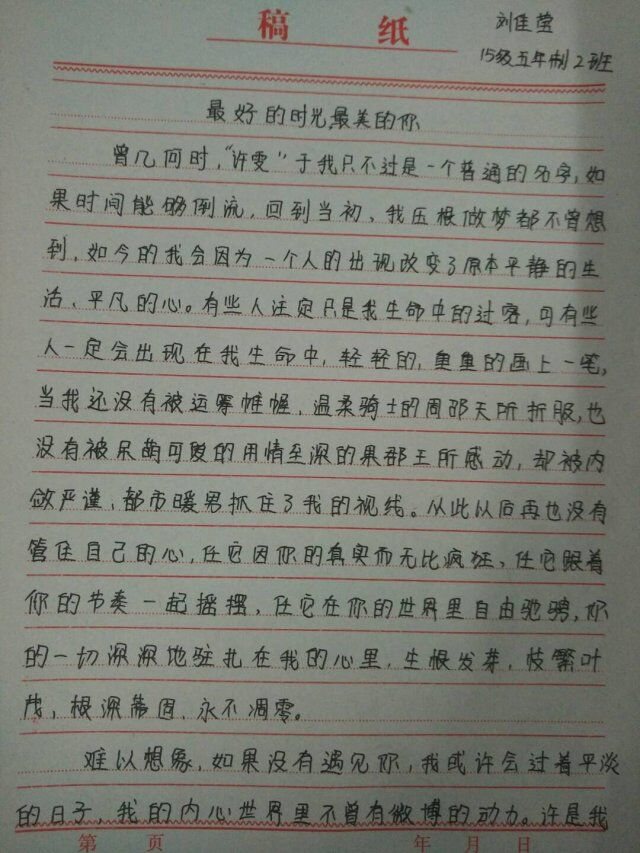 稿 纸
刘佳莹
15级五年制2班
最好的时光,最美的你
曾几何时,“许雯”于我只不过是一个普通的名字,如
果时间能够倒流,回到当初、我压根做梦都不曾想
到,如今的我会因为一个人的出现改变了原本平静的生
活、平凡的心。有些人注定只是我生命中的过客,可有些
人一定会出现在我生命中,轻轻的,重重的画上一笔,
当我还没有被运筹帷幄,温柔骑士的周邵天所折服,也
没有被呆萌可爱的用情至深的果郡王所感动,却被内
敛严谨,都市暖男抓住了我的视线。从此以后再也没有
管住自己的心,任它因你的真实而无比疯狂、任它跟着
你的节奏一起摇摆,任它在你的世界里自由驰骋,你
的一切深深地驻扎在我的心里,生根发芽,枝繁叶
茂,根深蒂固、永不凋零。
难以想象,如果没有遇见你,我或许会过着平淡
的日子,我的内心世界里不曾有微博的动力。许是我
第 页 年 月 日